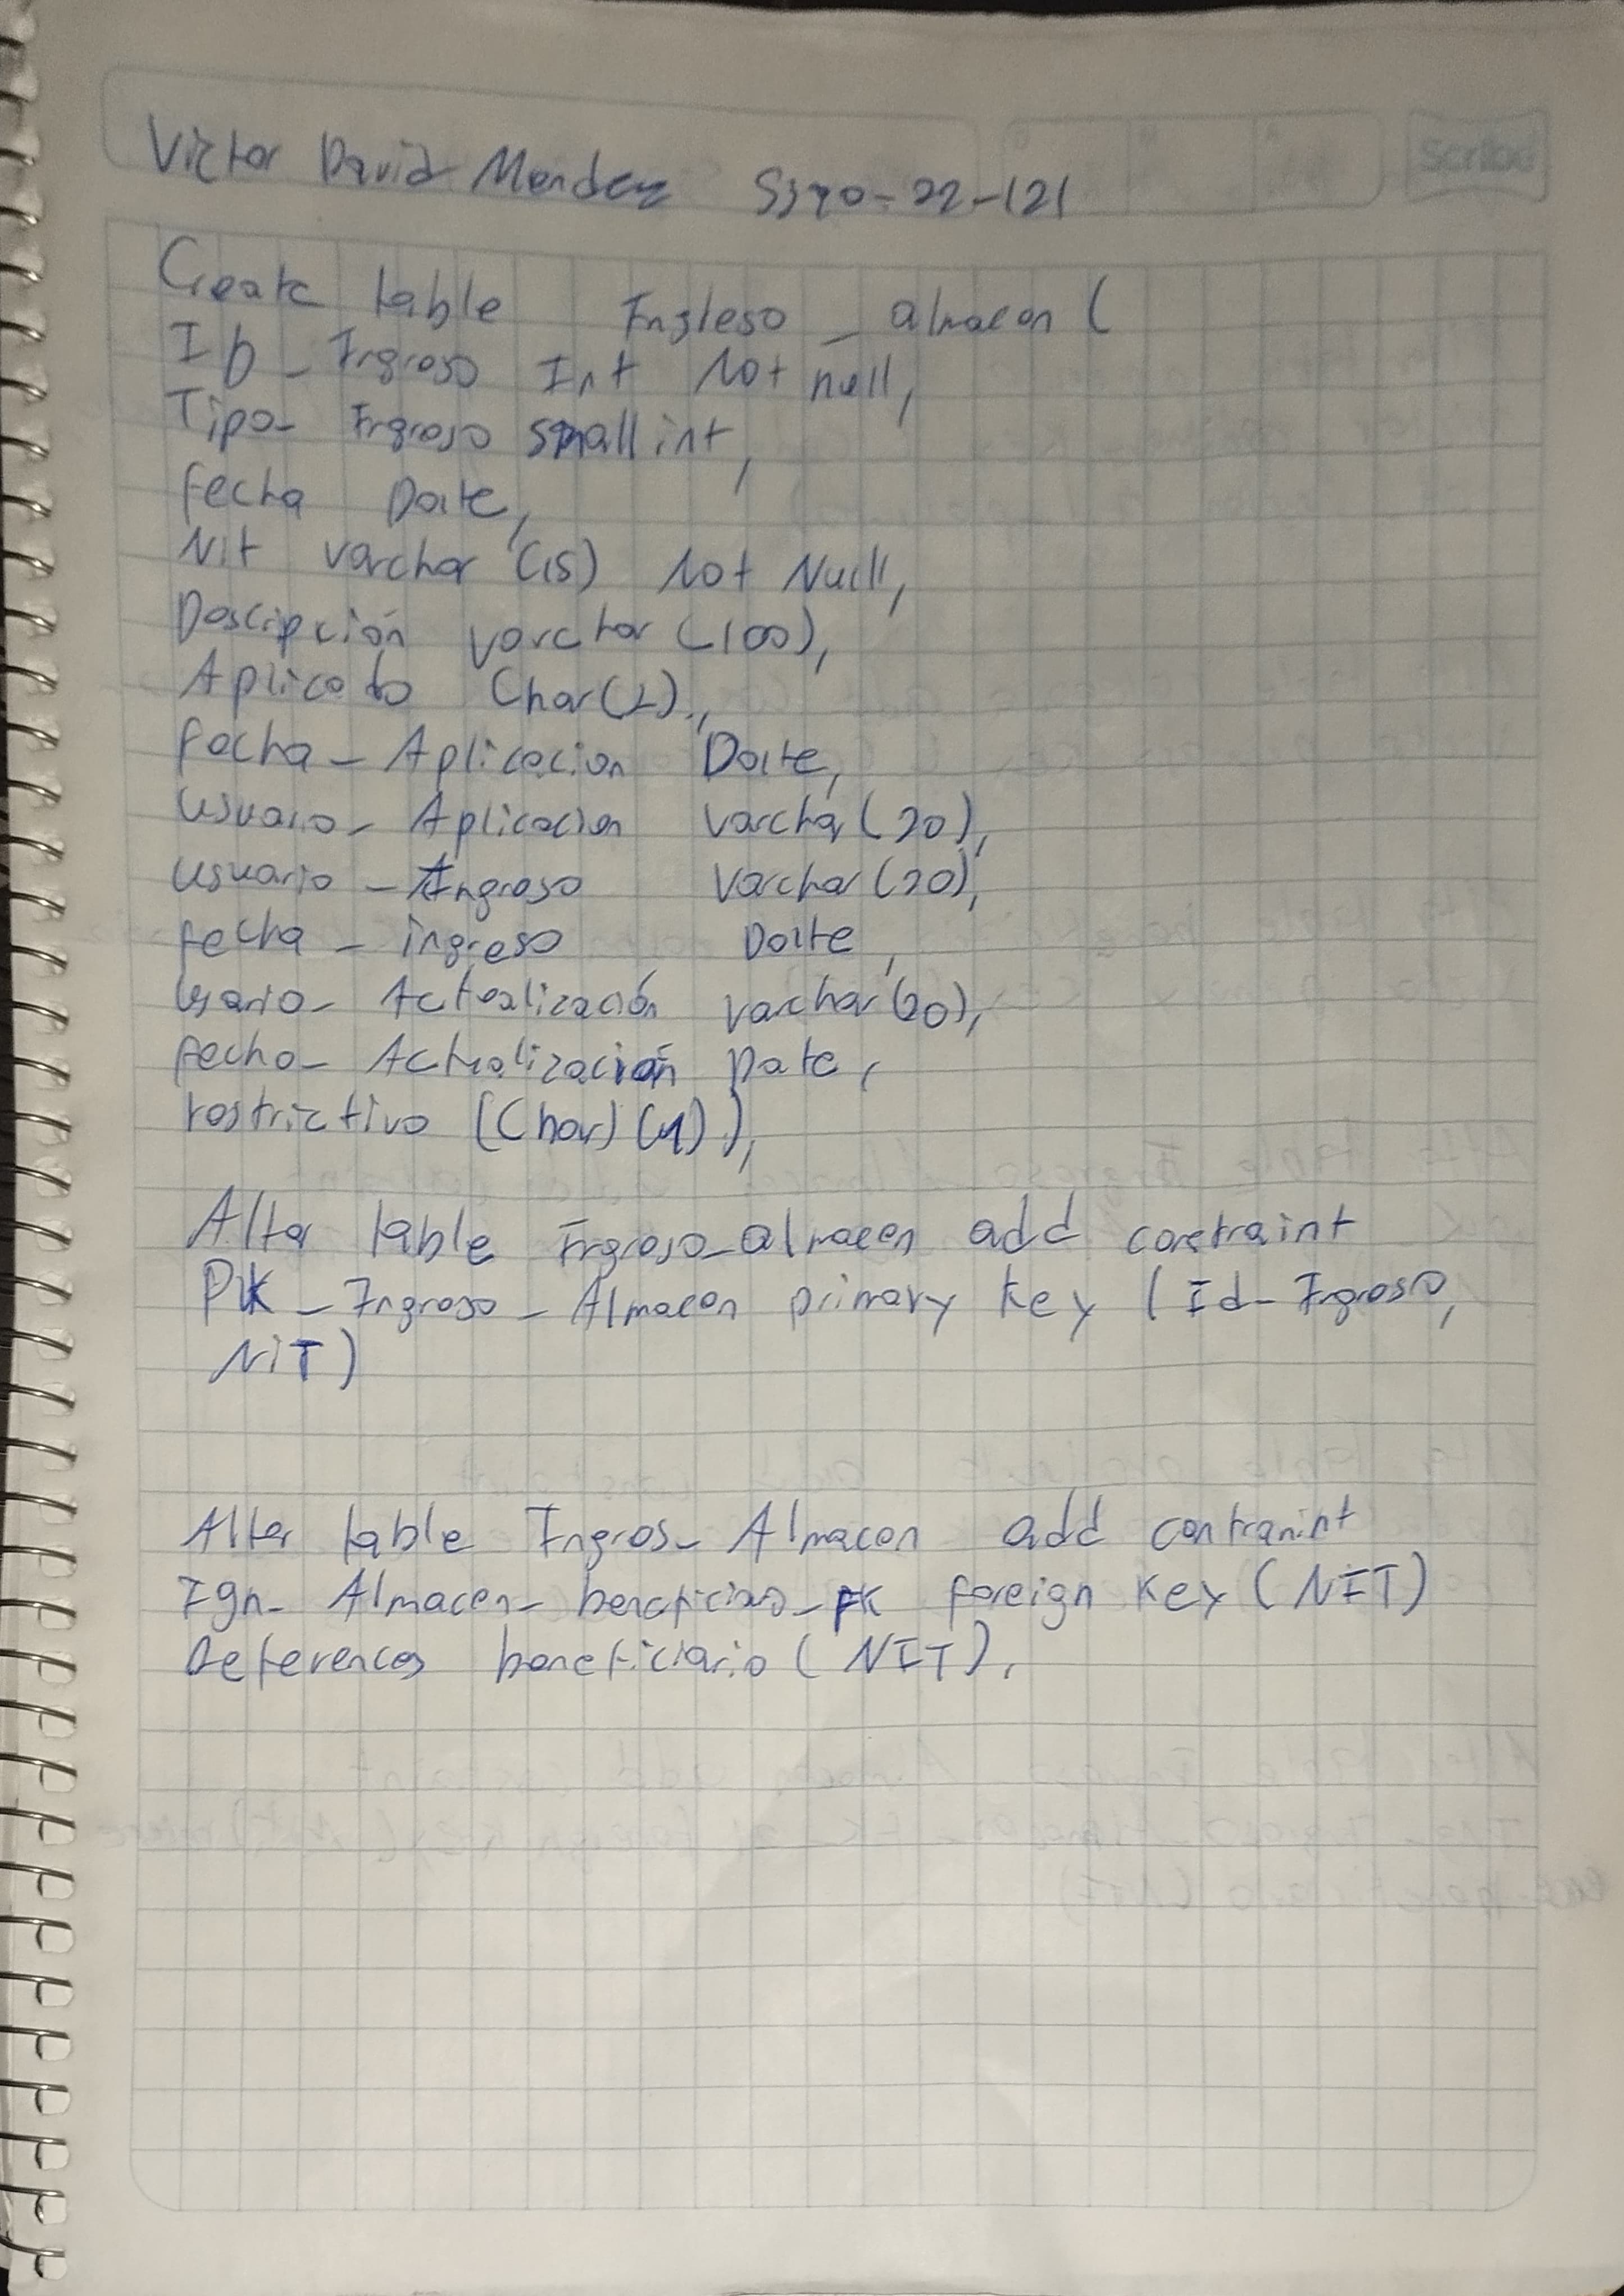 Victor David Mendez 5390-22-121
Scribe
Create table Ingreso_almacen (
ID_Ingreso Int Not null,
Tipo_Ingreso smallint,
fecha Date,
Nit varchar (15) Not Null,
Descipción varchar (100),
Aplicado Char(1),
fecha_Aplicacion Date,
usuario_Aplicacion varchar(20),
usuario_Ingreso varchar(20),
fecha_ingreso Date,
Usario_Actualización varchar(20),
fecha_Actualización Date,
restrictivo (Char)(1));
Alter table Ingreso_almacen add constraint
PK_Ingreso_Almacen primary key (Id_Ingreso,
NIT)
Alter table Ingros_Almacen add contranint
Ign_Almacen_beneficiario_FK foreign key (NIT)
References beneficiario (NIT).